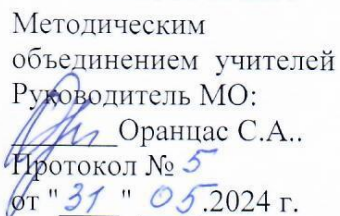 Методическим
объединением учителей
Руководитель МО:
______Оранцас С.А..
Протокол № 5
от " 31 " 05.2024 г.